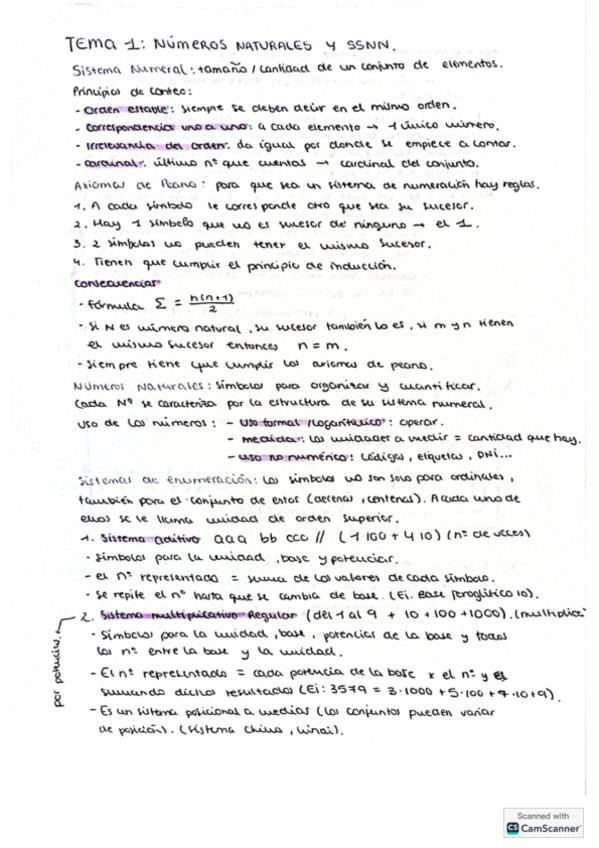 TEMA 1: NÚMEROS NATURALES Y SSNN.
Sistema Numeral: tamaño / cantidad de un conjunto de elementos.
Principios de conteo:
- Orden estable: siempre se deben decir en el mismo orden.
- Correspondencia uno a uno: a cada elemento → 1 único número.
- Irrelevancia del orden: da igual por donde se empiece a contar.
- cardinal: último nº que cuentas → cardinal del conjunto.
Axiomas de Peano: para que sea un sistema de numeración hay reglas.
1. A cada símbolo le corresponde otro que sea su sucesor.
2. Hay 1 símbolo que no es sucesor de ninguno → el 1.
3. 2 símbolos no pueden tener el mismo sucesor.
4. Tienen que cumplir el principio de inducción.
Consecuencias:
- Fórmula Σ = n(n+1)/2
- Si N es número natural, su sucesor también lo es, si m y n tienen
el mismo sucesor entonces n = m.
- Siempre tiene que cumplir los axiomas de peano.
Números Naturales: símbolos para organizar y cuantificar.
Cada Nº se caracteriza por la estructura de su sistema numeral.
Uso de los números: - Uso formal / logarítmico: operar.
- medida: las unidades a medir = cantidad que hay.
- uso no numérico: códigos, etiquetas, DNI...
Sistemas de enumeración: los símbolos no son solo para ordinales,
también para el conjunto de estos (decenas, centenas). A cada uno de
ellos se le llama unidad de orden superior.
1. Sistema aditivo aaa bb ccc // (1 100 + 4 10) (nº de veces)
- Símbolos para la unidad, base y potenciar.
- el nº representado = suma de los valores de cada símbolo.
- Se repite el nº hasta que se cambia de base. (Ej. Base jeroglífico 10).
2. Sistema multiplicativo Regular (del 1 al 9 + 10 + 100 + 1000). (multiplica
por potencias.
- Símbolos para la unidad, base, potencias de la base y todos
los nº entre la base y la unidad.
- El nº representado = cada potencia de la base x el nº y
sumando dichos resultados (Ej: 3579 = 3·1000 + 5·100 + 7·10 + 9).
- Es un sistema posicional a medias (los conjuntos pueden variar
de posición). (Sistema Chino,
Scanned with
CS CamScanner